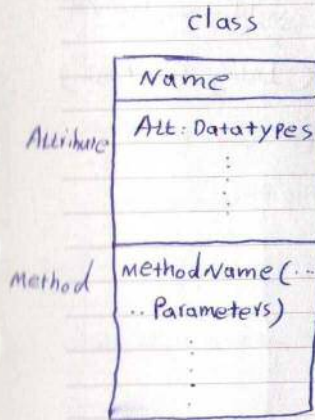 class
Name
Attribute
Att: Datatypes
Method
methodName(...
.. Parameters)